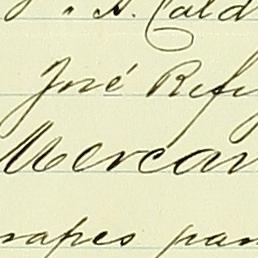 " A. Cald
José Refu
Mercan
rapes pan